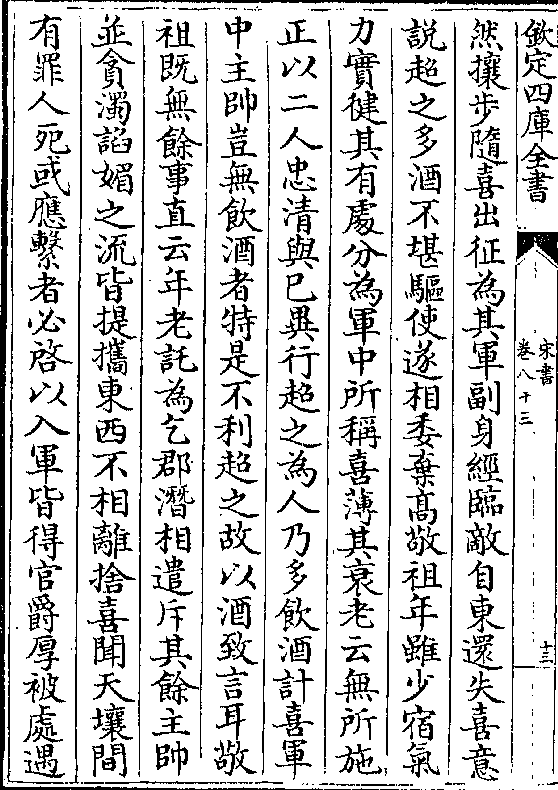 欽定四庫全書
宋書
卷八十三
十三
然攘步隨喜出征為其軍副身經臨敵自東還失喜意
說超之多酒不堪驅使遂相委棄高敬祖年雖少宿氣
力實健其有處分為軍中所稱喜薄其衰老云無所施
正以二人忠清與己異行超之為人乃多飲酒計喜軍
中主帥豈無飲酒者特是不利超之故以酒致言耳敬
祖既無餘事直云年老託為乞郡潛相遣斥其餘主帥
並貪濁諂媚之流皆提攜東西不相離捨喜聞天壤間
有罪人死或應繫者必啓以入軍皆得官爵厚被處遇